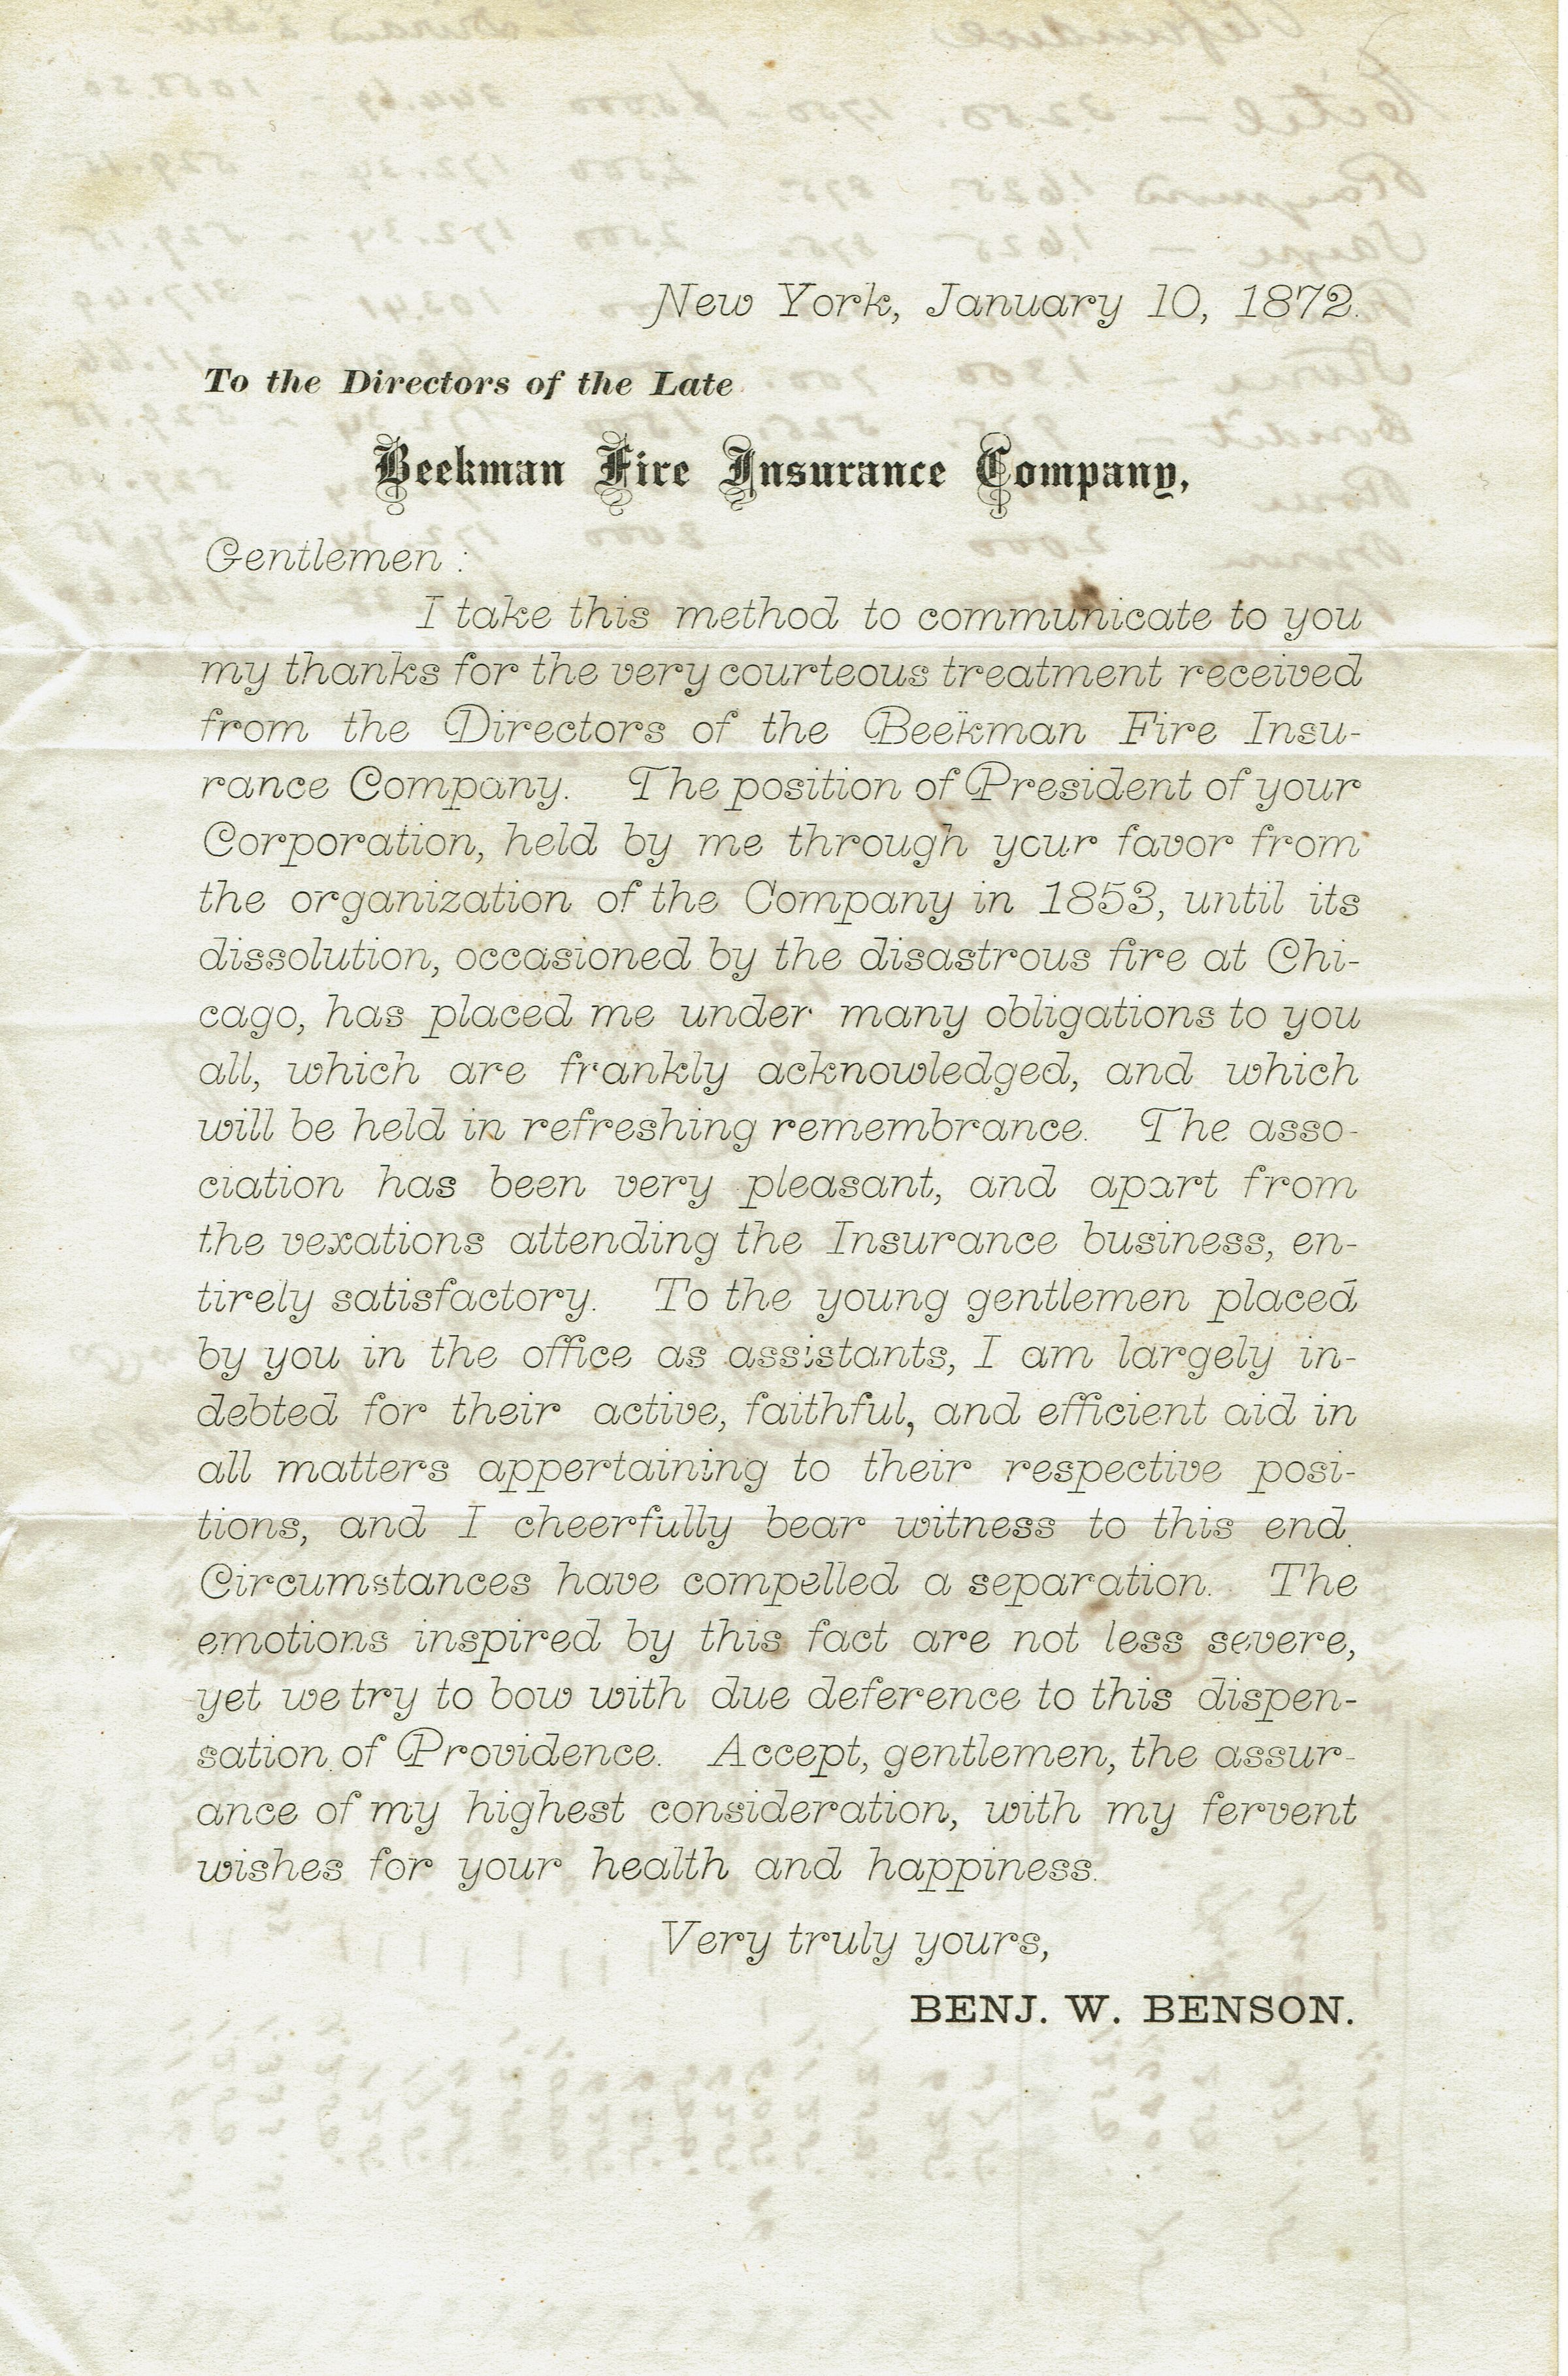 New York, January 10, 1872.
To the Directors of the Late
Beekman Fire Insurance Company,
Gentlemen :
I take this method to communicate to you
my thanks for the very courteous treatment received
from the Directors of the Beekman Fire Insu-
rance Company. The position of President of your
Corporation, held by me through your favor from
the organization of the Company in 1853, until its
dissolution, occasioned by the disastrous fire at Chi-
cago, has placed me under many obligations to you
all, which are frankly acknowledged, and which
will be held in refreshing remembrance. The asso-
ciation has been very pleasant, and apart from
the vexations attending the Insurance business, en-
tirely satisfactory. To the young gentlemen placed
by you in the office as assistants, I am largely in-
debted for their active, faithful, and efficient aid in
all matters appertaining to their respective posi-
tions, and I cheerfully bear witness to this end.
Circumstances have compelled a separation. The
emotions inspired by this fact are not less severe,
yet we try to bow with due deference to this dispen-
sation of Providence. Accept, gentlemen, the assur-
ance of my highest consideration, with my fervent
wishes for your health and happiness.
Very truly yours,
BENJ. W. BENSON.